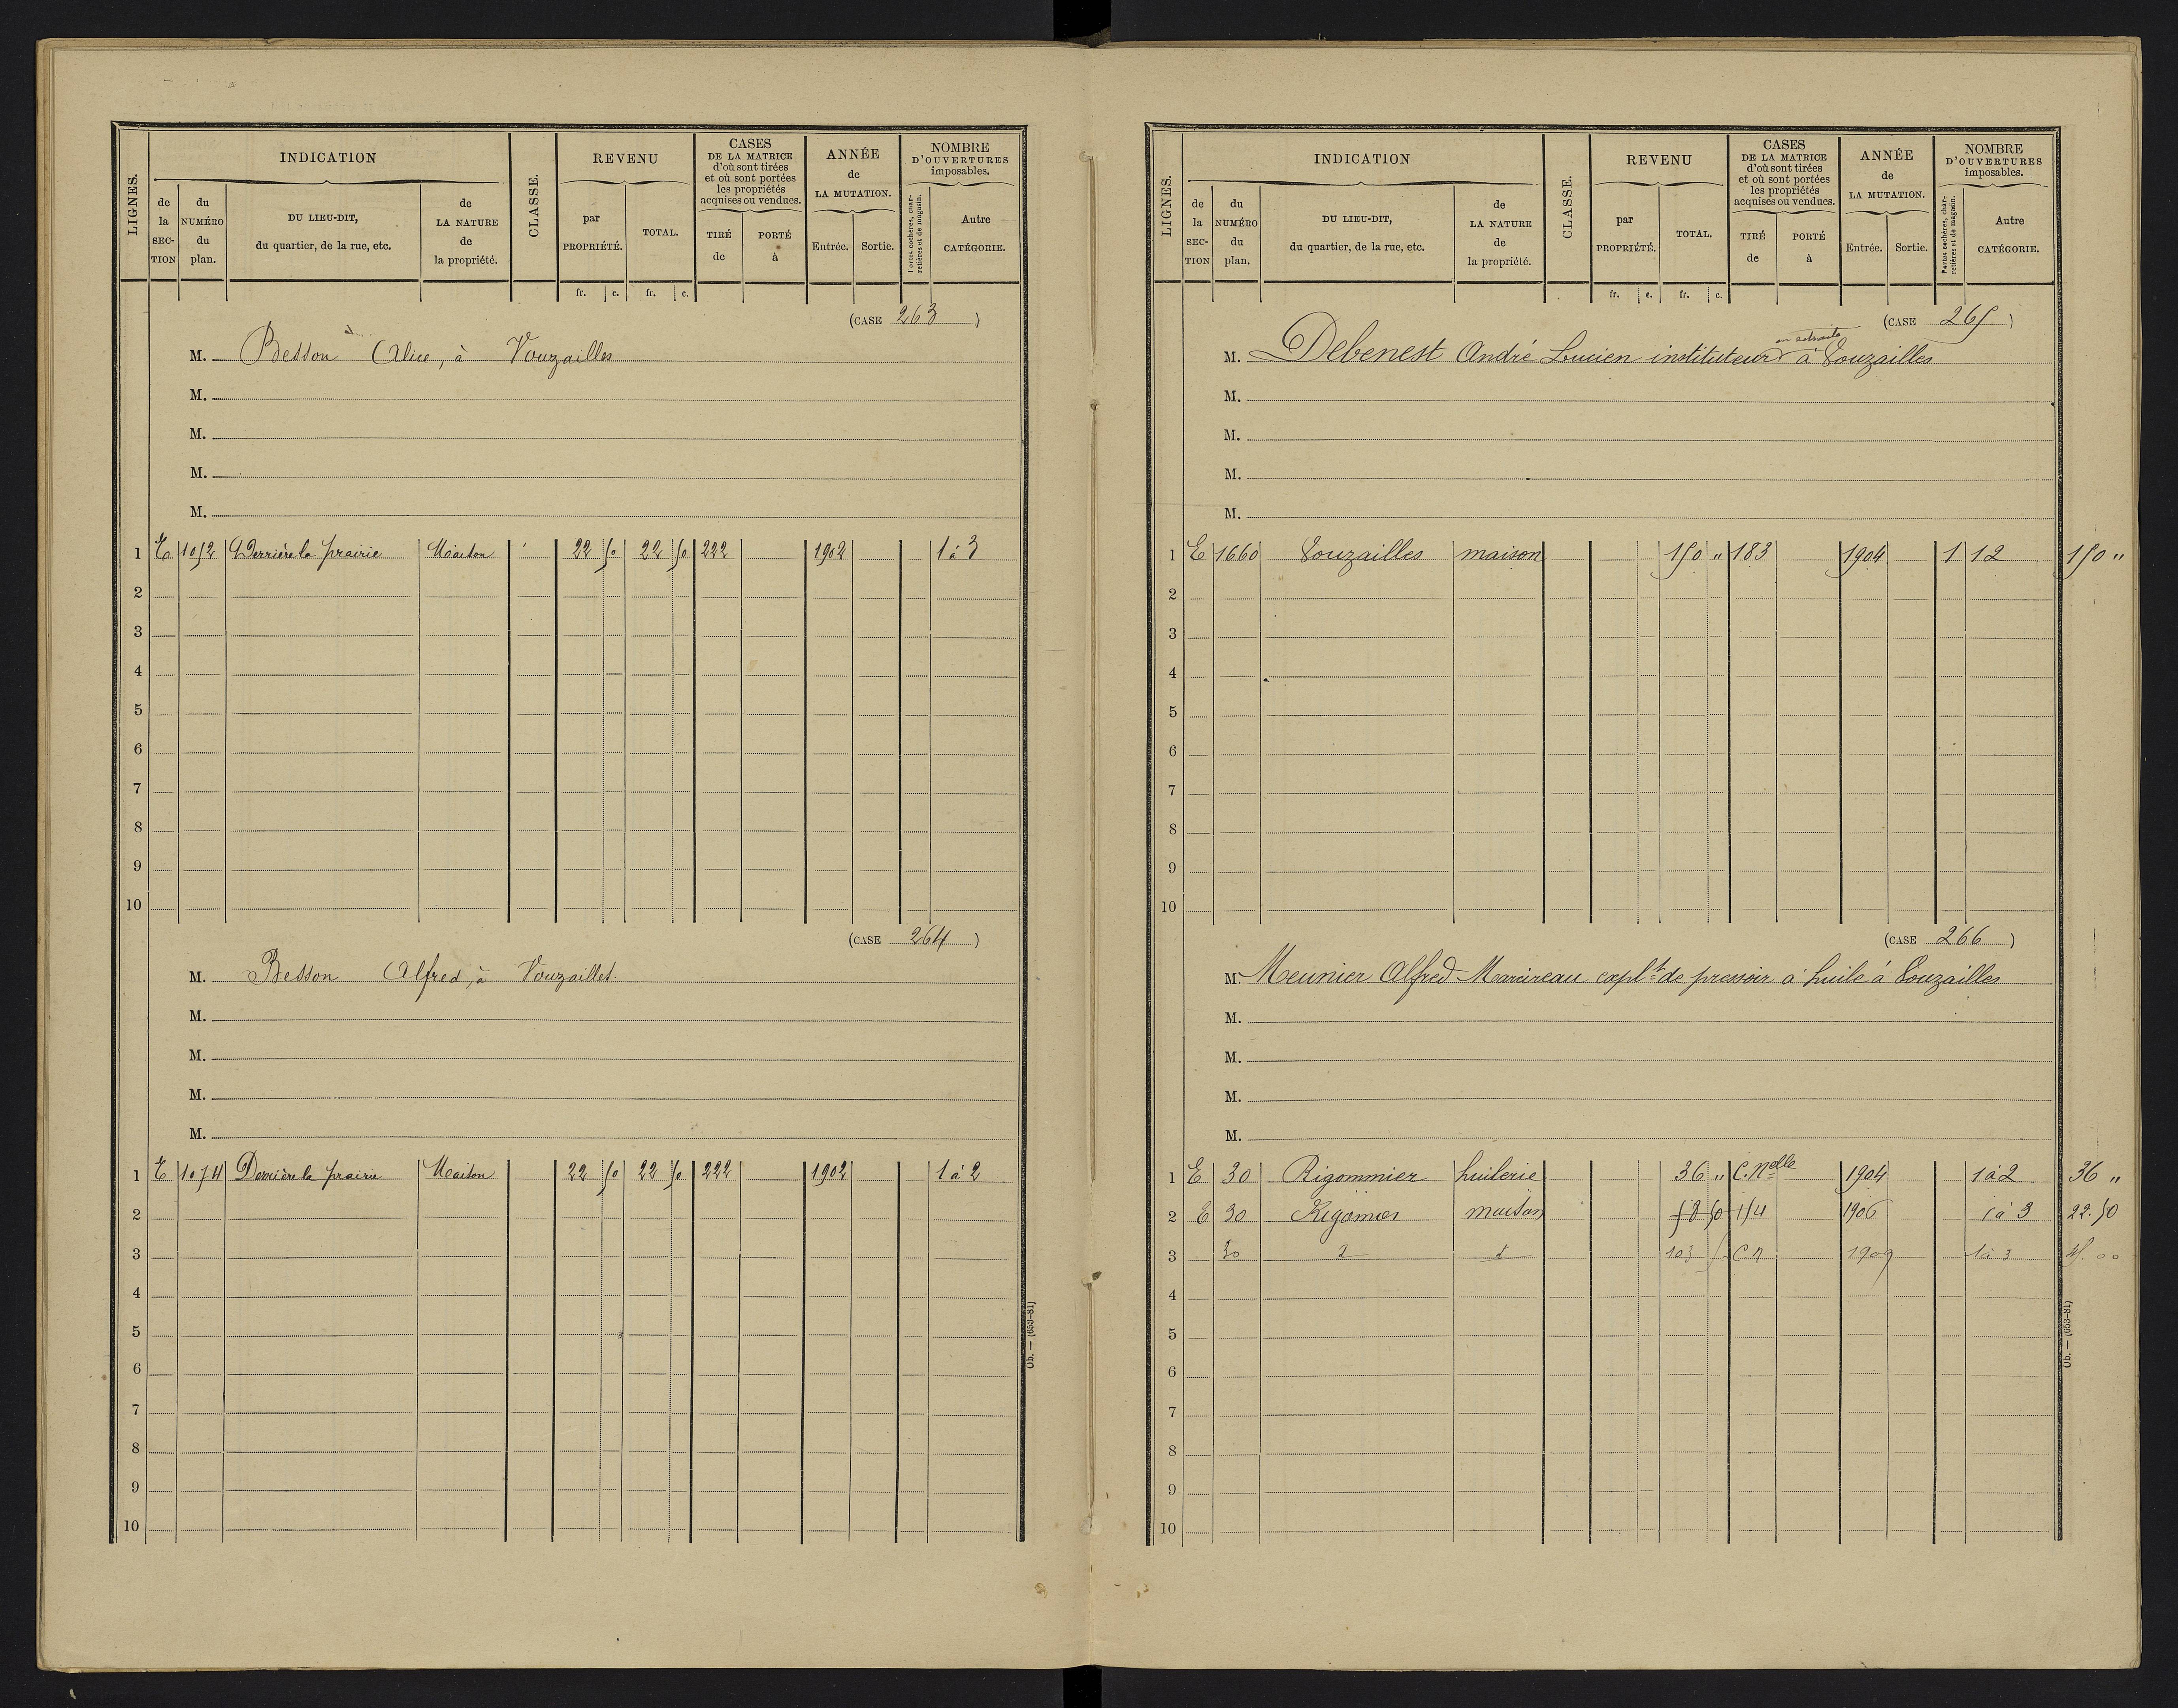 LIGNES.
INDICATION
de la SECTION
du NUMÉRO du plan.
DU LIEU-DIT, du quartier, de la rue, etc.
de LA NATURE de la propriété.
CLASSE.
REVENU
par PROPRIÉTÉ.
TOTAL.
CASES DE LA MATRICE d'où sont tirées et où sont portées les propriétés acquises ou vendues.
TIRÉ de
PORTÉ à
ANNÉE de LA MUTATION.
Entrée.
Sortie.
NOMBRE D'OUVERTURES imposables.
Portes cochères, charretières et de magasin.
Autre CATÉGORIE.
fr. c. fr. c.
(CASE 263)
M. Besson Alice, à Vouzailles
M.
M.
M.
M.
1 E 1052 Derrière la prairie Maison 22 50 22 50 222 1902 1 à 3
2
3
4
5
6
7
8
9
10
(CASE 264)
M. Besson Alfred, à Vouzailles
M.
M.
M.
M.
1 E Derrière la prairie Maison 22 50 22 50 222 1902 1 à 2
2
3
4
5
6
7
8
9
10
Ob. — (653-81)
LIGNES.
INDICATION
de la SECTION
du NUMÉRO du plan.
DU LIEU-DIT, du quartier, de la rue, etc.
de LA NATURE de la propriété.
CLASSE.
REVENU
par PROPRIÉTÉ.
TOTAL.
CASES DE LA MATRICE d'où sont tirées et où sont portées les propriétés acquises ou vendues.
TIRÉ de
PORTÉ à
ANNÉE de LA MUTATION.
Entrée.
Sortie.
NOMBRE D'OUVERTURES imposables.
Portes cochères, charretières et de magasin.
Autre CATÉGORIE.
fr. c. fr. c.
(CASE 265)
en retraite
M. Debenest André Lucien instituteur à Vouzailles
M.
M.
M.
M.
1 E 1660 Vouzailles maison 150 " 183 1904 1 12 150 "
2
3
4
5
6
7
8
9
10
(CASE 266)
M. Meunier Alfred Marcireau explt de pressoir à huile à Vouzailles
M.
M.
M.
M.
1 E 30 Rigommier huilerie 36 " C. Nelle 1904 1 à 2 36 "
2 E 30 maison 58 50 1906 1 à 3 22.50
3 30 103 C.N 1909 1 à 3
4
5
6
7
8
9
10
Ob. — (653-81)